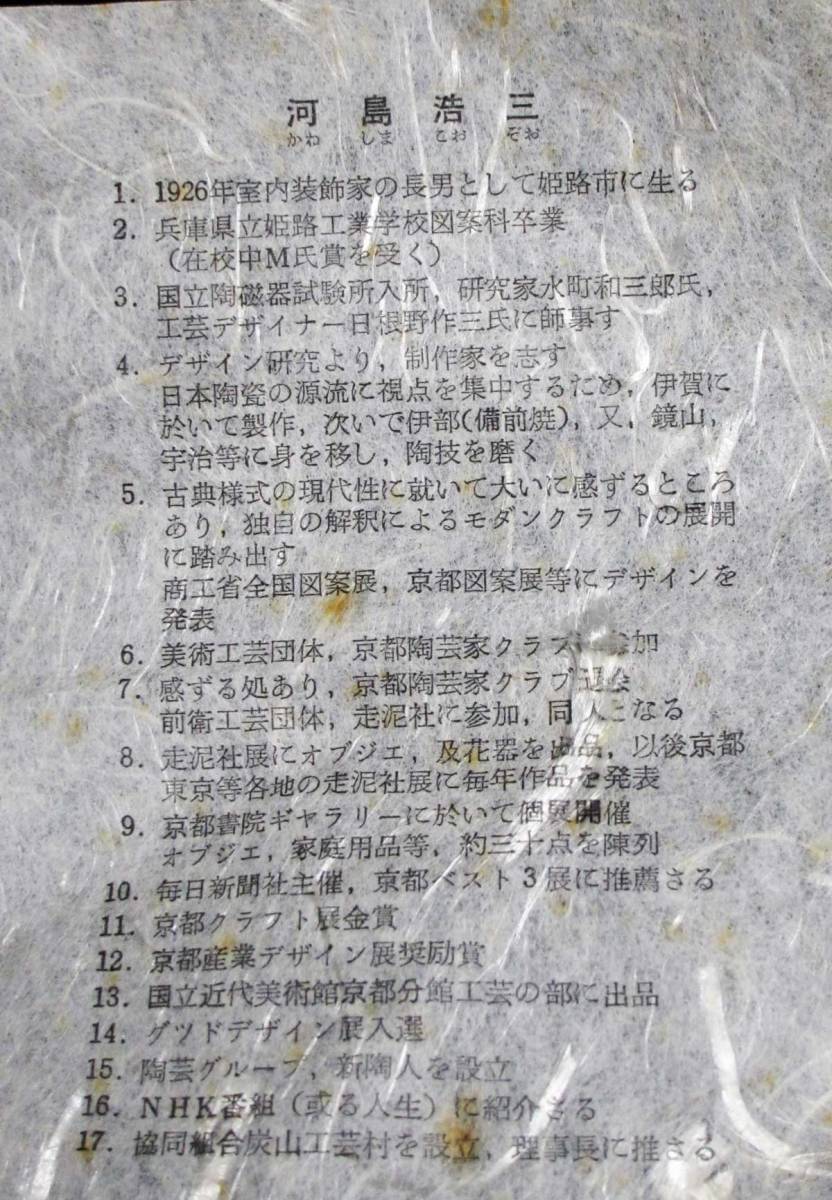 河島浩三
かわ しま こお ぞお
1. 1926年室内装飾家の長男として姫路市に生る
2. 兵庫県立姫路工業学校図案科卒業
(在校中M氏賞を受く)
3. 国立陶磁器試験所入所，研究家水町和三郎氏，
工芸デザイナー日根野作三氏に師事す
4. デザイン研究より，制作家を志す
日本陶瓷の源流に視点を集中するため，伊賀に
於いて製作，次いで伊部(備前焼)，又，鏡山，
宇治等に身を移し，陶技を磨く
5. 古典様式の現代性に就いて大いに感ずるところ
あり，独自の解釈によるモダンクラフトの展開
に踏み出す
商工省全国図案展，京都図案展等にデザインを
発表
6. 美術工芸団体，京都陶芸家クラブに参加
7. 感ずる処あり，京都陶芸家クラブ退会
前衛工芸団体，走泥社に参加，同人となる
8. 走泥社展にオブジエ，及花器を出品，以後京都
東京等各地の走泥社展に毎年作品を発表
9. 京都書院ギャラリーに於いて個展開催
オブジエ，家庭用品等，約三十点を陳列
10. 毎日新聞社主催，京都ベスト3展に推薦さる
11. 京都クラフト展金賞
12. 京都産業デザイン展奨励賞
13. 国立近代美術館京都分館工芸の部に出品
14. グツドデザイン展入選
15. 陶芸グループ，新陶人を設立
16. NHK番組（或る人生）に紹介さる
17. 協同組合炭山工芸村を設立，理事長に推さる